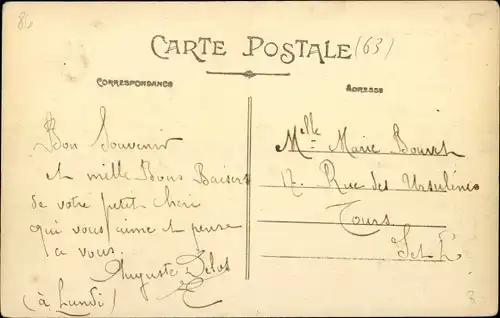 86
CARTE POSTALE (63)
CORRESPONDANCE
ADRESSE
Bon Souvenir
et mille Bons Baisers
de votre petit cheri
qui vous aime et pense
a vous.
Auguste
(à Lundi)
Melle Marie
17 Rue des Ursulines
Tours
I et L.
3